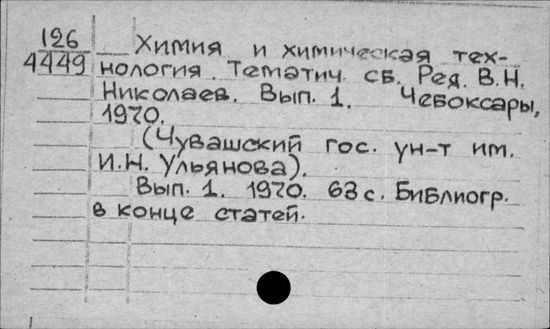 126
4449
Химия и химическая тех-
нология. Тематич. сб. Ред. В.Н.
Николаев. Вып. 1. Чебоксары,
1970.
(Чувашский гос. ун-т им.
И.Н. Ульянова).
Вып. 1. 1970. 63 с. Библиогр.
в конце статей.